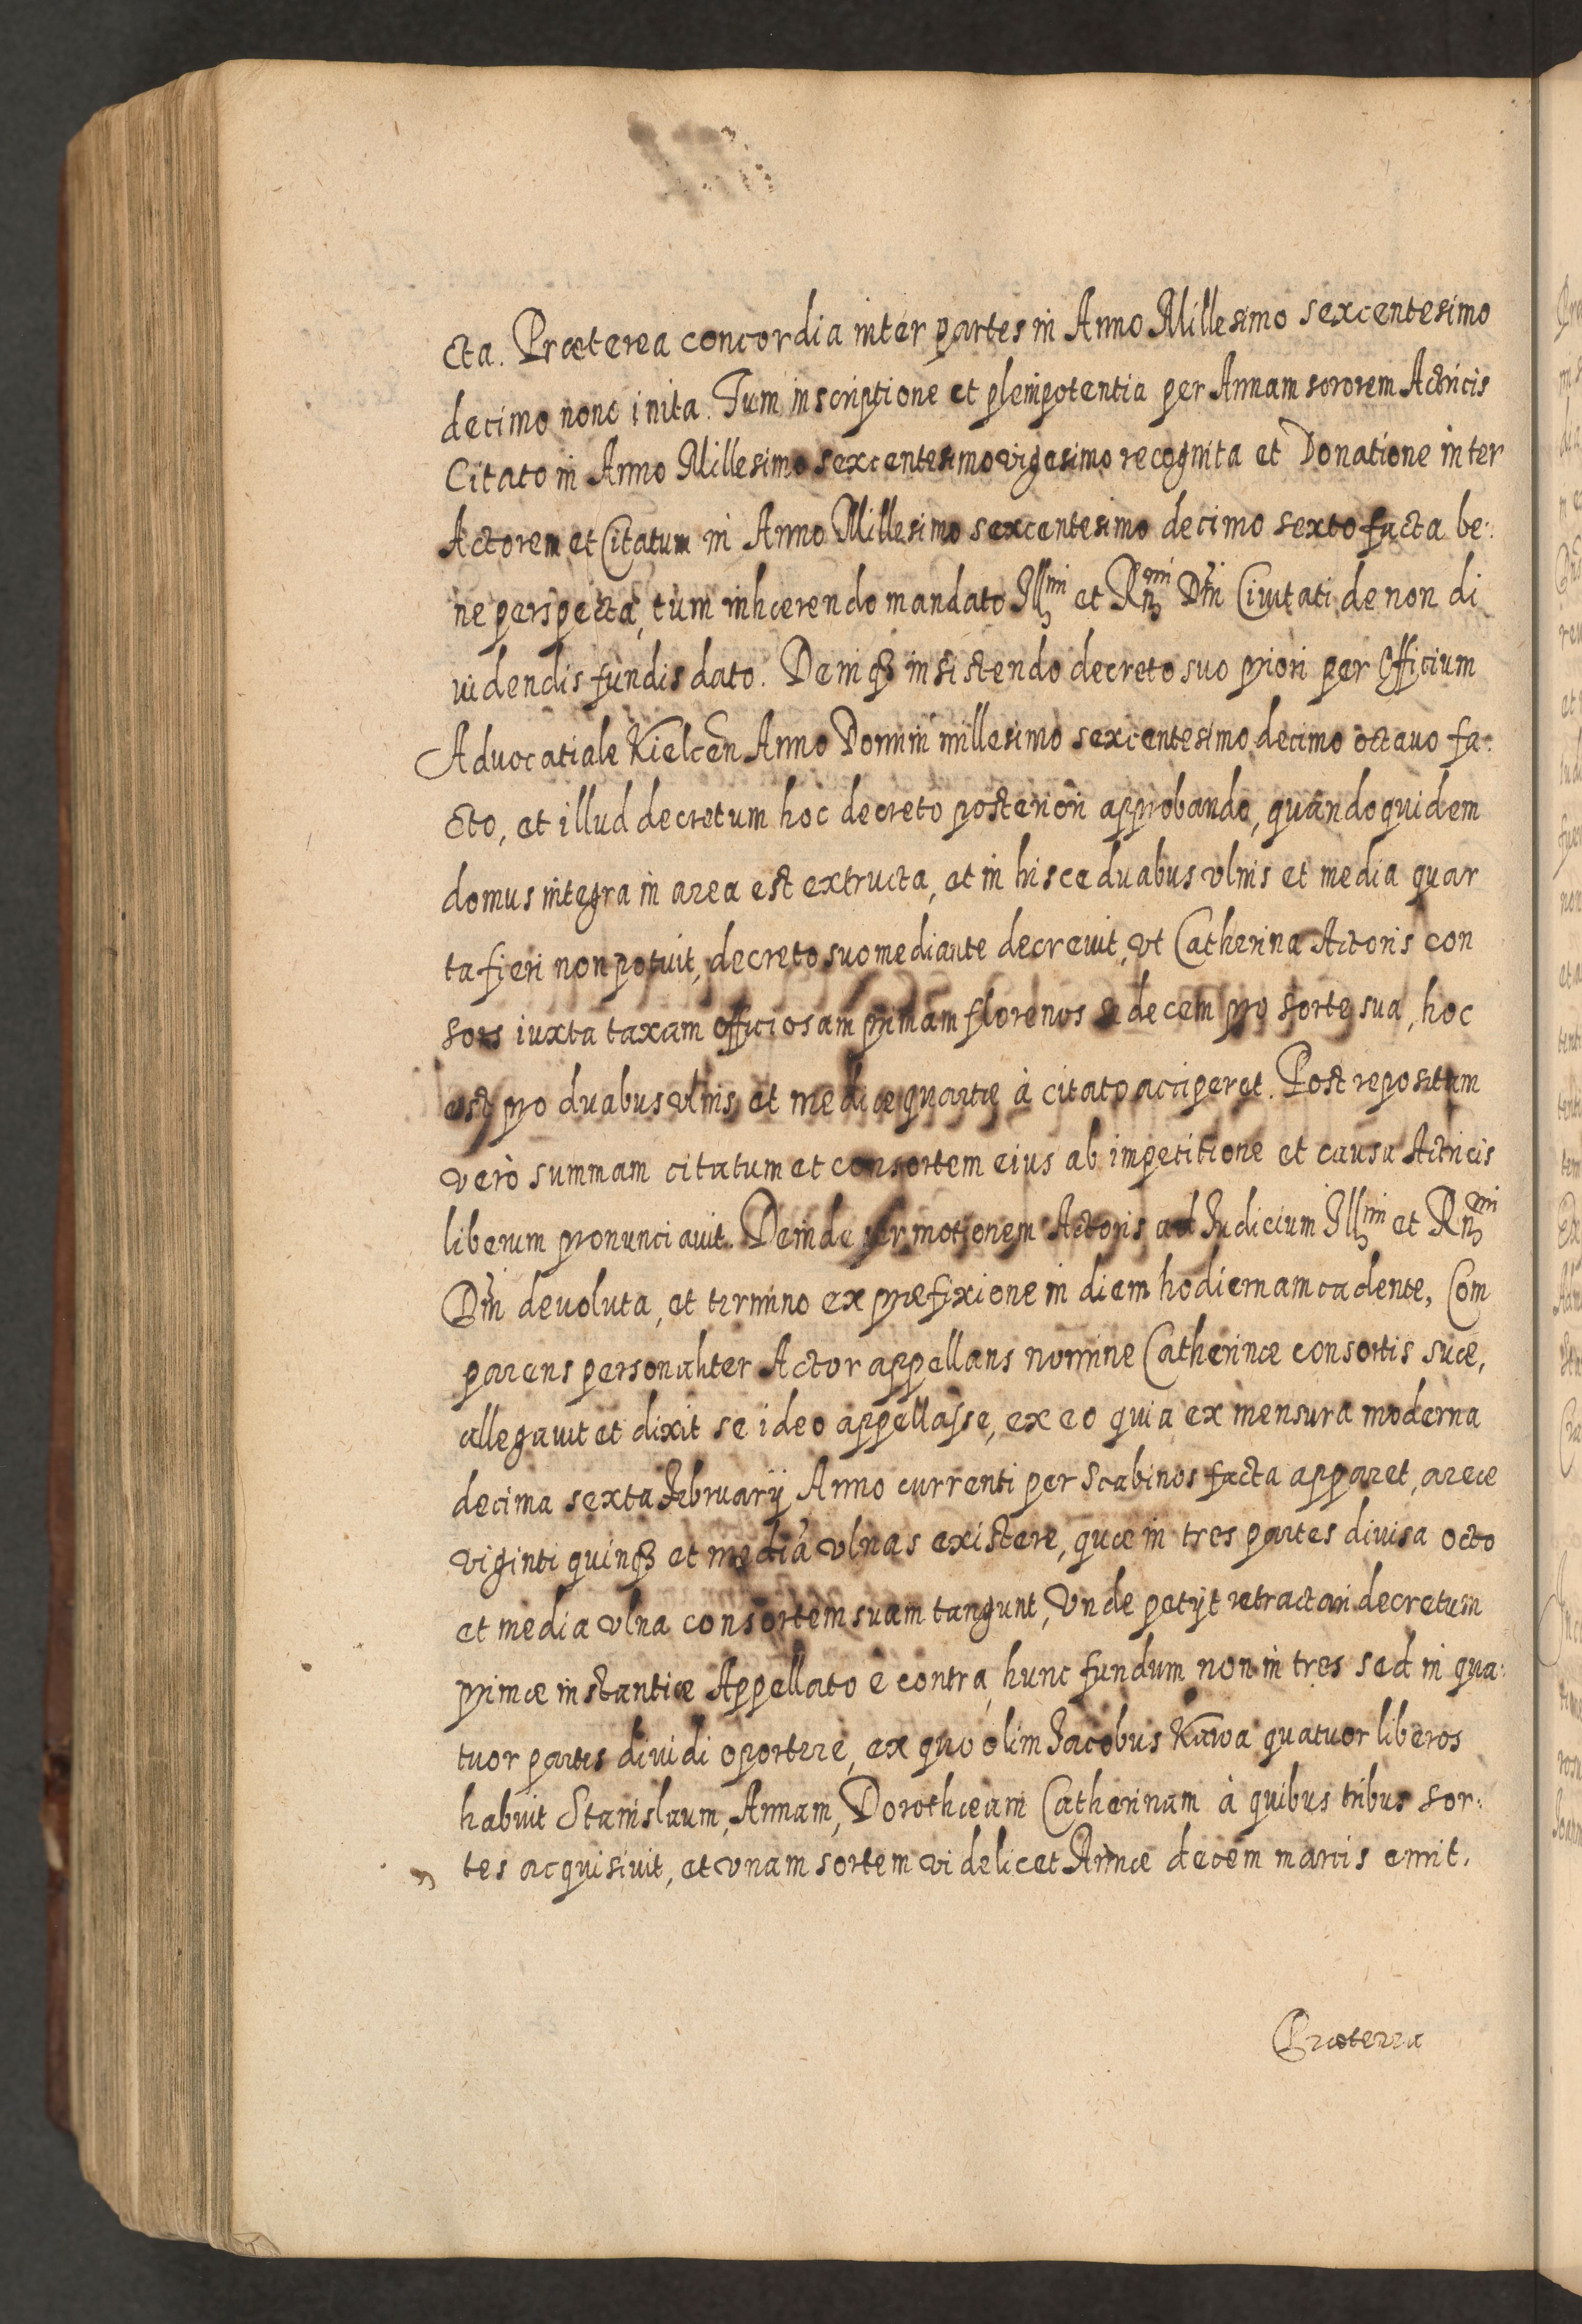 cta. Præterea concordia inter partes in Anno Millesimo sexcentesimo
decimo nono inita. Tum inscriptione et plenipotentia per Annam sororem Actricis
Citato in Anno Millesimo sexcentesimo vigesimo recognita et Donatione inter
Actorem et Citatum in Anno Millesimo sexcentesimo decimo sexto facta be:
ne perspecta, tum inhærendo mandato Illmi et Rmi Dni Civitati de non di
videndis fundis dato. Deniqȝ insistendo decreto suo priori per Officium
Advocatiale Kielcen Anno Domini millesimo sexcentesimo decimo octauo fa:
cto, et illud decretum hoc decreto posteriori approbando, quandoquidem
domus integra in area est extructa, et in hisce duabus vlnis et media quar
ta fieri non potuit, decreto suo mediante decreuit, vt Catherina Actoris con
sors iuxta taxam officiosam primam florenos sedecem pro sorte sua, hoc
est pro duabus vlnis et mediæ quartæ à citato acciperet. Post repositam
verò summam citatum et consortem eius ab impetitione et causa Actricis
liberum pronunciauit. Deinde per motionem Actoris ad Iudicium Illmi et Rmi
Dni deuoluta, et termino ex præfixione in diem hodiernam cadente, Com
parens personaliter Actor appellans nomine Catherinæ consortis suæ,
allegauit et dixit se ideo appellasse, ex eo quia ex mensura moderna
decima sexta February Anno currenti per Scabinos facta apparet, areæ
viginti quinqȝ et media vlnas existere, quæ in tres partes divisa octo
et media vlna consortem suam tangunt, Vnde petijt retractari decretum
primæ instantiæ Appellato è contra, hunc fundum non in tres sed in qua:
tuor partes diuidi oportere, ex quo olim Iacobus Kawa quatuor liberos
habuit Stanislaum, Annam, Dorothæam Catherinam à quibus tribus sor:
tes acquisiuit, et vnam sortem videlicet Annæ decem marcis emit.
Præterea